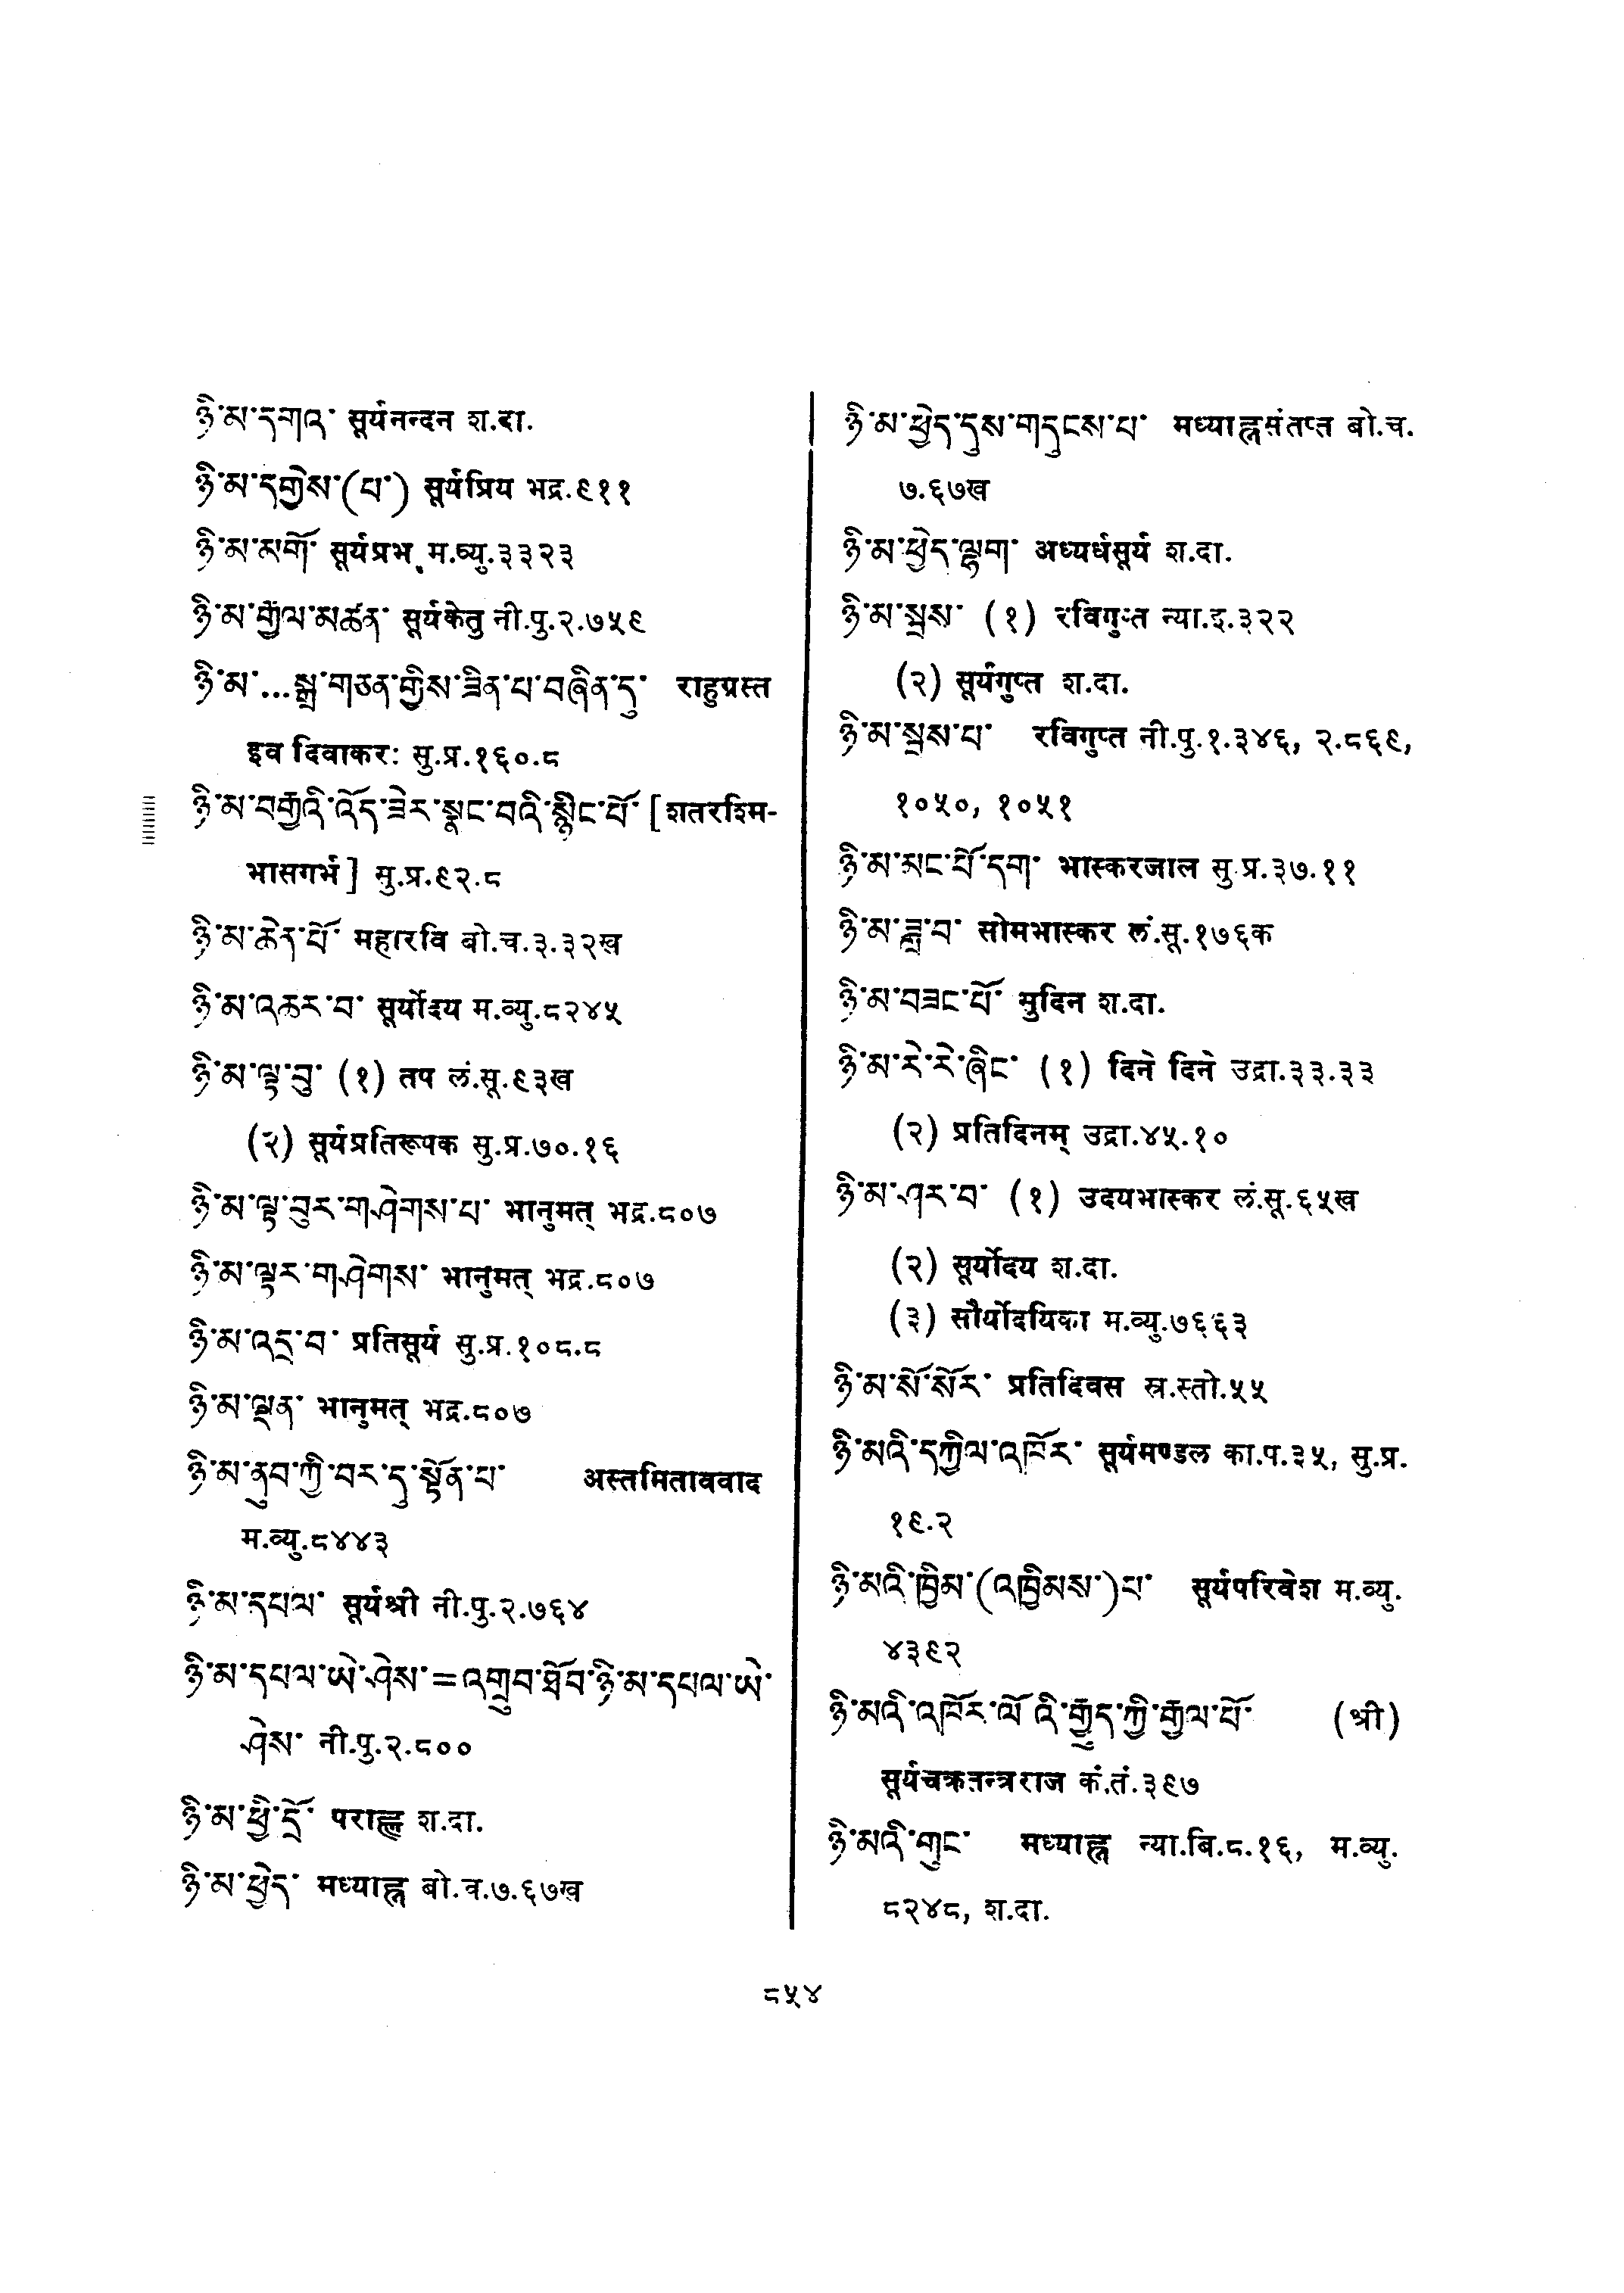 ཉི་མ་དགའ་ सूर्यनन्दन श.दा.
ཉི་མ་དགྱེས་(པ་) सूर्यप्रिय भद्र.९११
ཉི་མ་མགོ་ सूर्यप्रभ म.व्यु.३३२३
ཉི་མ་རྒྱལ་མཚན་ सूर्यकेतु नी.पु.२.७५९
ཉི་མ་...སྒྲ་གཅན་གྱིས་ཟིན་པ་བཞིན་དུ་ राहुग्रस्त
इव दिवाकरः सु.प्र.१६०.८
ཉི་མ་བརྒྱའི་འོད་ཟེར་སྣང་བའི་སྙིང་པོ་ [शतरश्मि-
भासगर्भ] सु.प्र.९२.८
ཉི་མ་ཆེན་པོ་ महारवि बो.च.३.३२ख
ཉི་མ་འཆར་བ་ सूर्योदय म.व्यु.८२४५
ཉི་མ་ལྟ་བུ་ (१) तप लं.सू.९३ख
(२) सूर्यप्रतिरूपक सु.प्र.७०.१६
ཉི་མ་ལྟ་བུར་གཤེགས་པ་ भानुमत् भद्र.८०७
ཉི་མ་ལྟར་གཤེགས་ भानुमत् भद्र.८०७
ཉི་མ་འདྲ་བ་ प्रतिसूर्य सु.प्र.१०८.८
ཉི་མ་ལྡན་ भानुमत् भद्र.८०७
ཉི་མ་ནུབ་ཀྱི་བར་དུ་སྟོན་པ་ अस्तमिताववाद
म.व्यु.८४४३
ཉི་མ་དཔལ་ सूर्यश्री नी.पु.२.७६४
ཉི་མ་དཔལ་ཡེ་ཤེས་=འགྲུབ་ཐོབ་ཉི་མ་དཔལ་ཡེ་
ཤེས་ नी.पु.२.८००
ཉི་མ་ཕྱི་དྲོ་ पराह्ण श.दा.
ཉི་མ་ཕྱེད་ मध्याह्न बो.च.७.६७ख
ཉི་མ་ཕྱེད་དུས་གདུངས་པ་ मध्याह्नसंतप्त बो.च.
७.६७ख
ཉི་མ་ཕྱེད་ལྷག་ अध्यर्धसूर्य श.दा.
ཉི་མ་སྦས་ (१) रविगुप्त न्या.इ.३२२
(२) सूर्यगुप्त श.दा.
ཉི་མ་སྦས་པ་ रविगुप्त नी.पु.१.३४६, २.८६९,
१०५०, १०५१
ཉི་མ་མང་པོ་དག་ भास्करजाल सु.प्र.३७.११
ཉི་མ་ཟླ་བ་ सोमभास्कर लं.सू.१७६क
ཉི་མ་བཟང་པོ་ सुदिन श.दा.
ཉི་མ་རེ་རེ་ཞིང་ (१) दिने दिने उद्रा.३३.३३
(२) प्रतिदिनम् उद्रा.४५.१०
ཉི་མ་ཤར་བ་ (१) उदयभास्कर लं.सू.६५ख
(२) सूर्योदय श.दा.
(३) सौर्योदयिका म.व्यु.७६६३
ཉི་མ་སོ་སོར་ प्रतिदिवस स्र.स्तो.५५
ཉི་མའི་དཀྱིལ་འཁོར་ सूर्यमण्डल का.प.३५, सु.प्र.
१९.२
ཉི་མའི་ཁྱིམ་(འཁྱིམས་)པ་ सूर्यपरिवेश म.व्यु.
४३९२
ཉི་མའི་འཁོར་ལོ་འི་རྒྱུད་ཀྱི་རྒྱལ་པོ་ (श्री)
सूर्यचक्रतन्त्रराज कं.तं.३९७
ཉི་མའི་གུང་ मध्याह्न न्या.बि.८.१६, म.व्यु.
८२४८, श.दा.
८५४